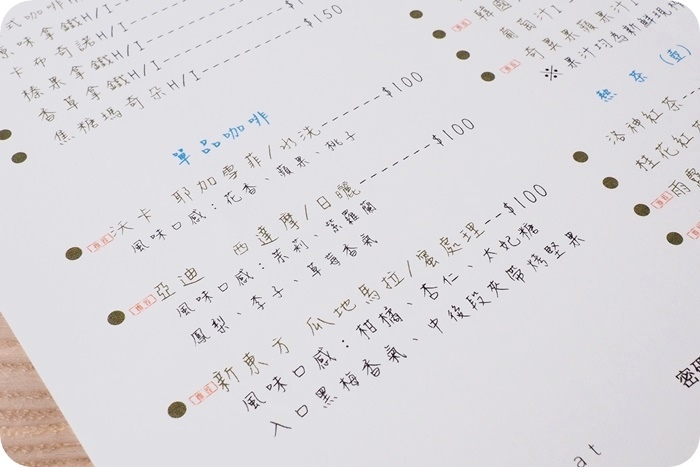 $150
原味拿鐵H/I
卡布奇諾H/I
榛果拿鐵H/I
香草拿鐵H/I
焦糖瑪奇朵H/I
單品咖啡
沃卡 耶加雪菲/水洗------$100
風味口感:花香、蘋果、桃子
亞迪 西達摩/日曬------$100
風味口感:茉莉、紫羅蘭
鳳梨、李子、草莓香氣
新東方 瓜地馬拉/蜜處理--$100
風味口感:柑橘、杏仁、太妃糖
入口黑梅香氣、中後段夾帶烤堅果
韓國
葡萄汁
奇異果蘋果汁
※果汁均為新鮮現
熱茶(壺)
洛神紅茶
桂花紅茶
密碼
at